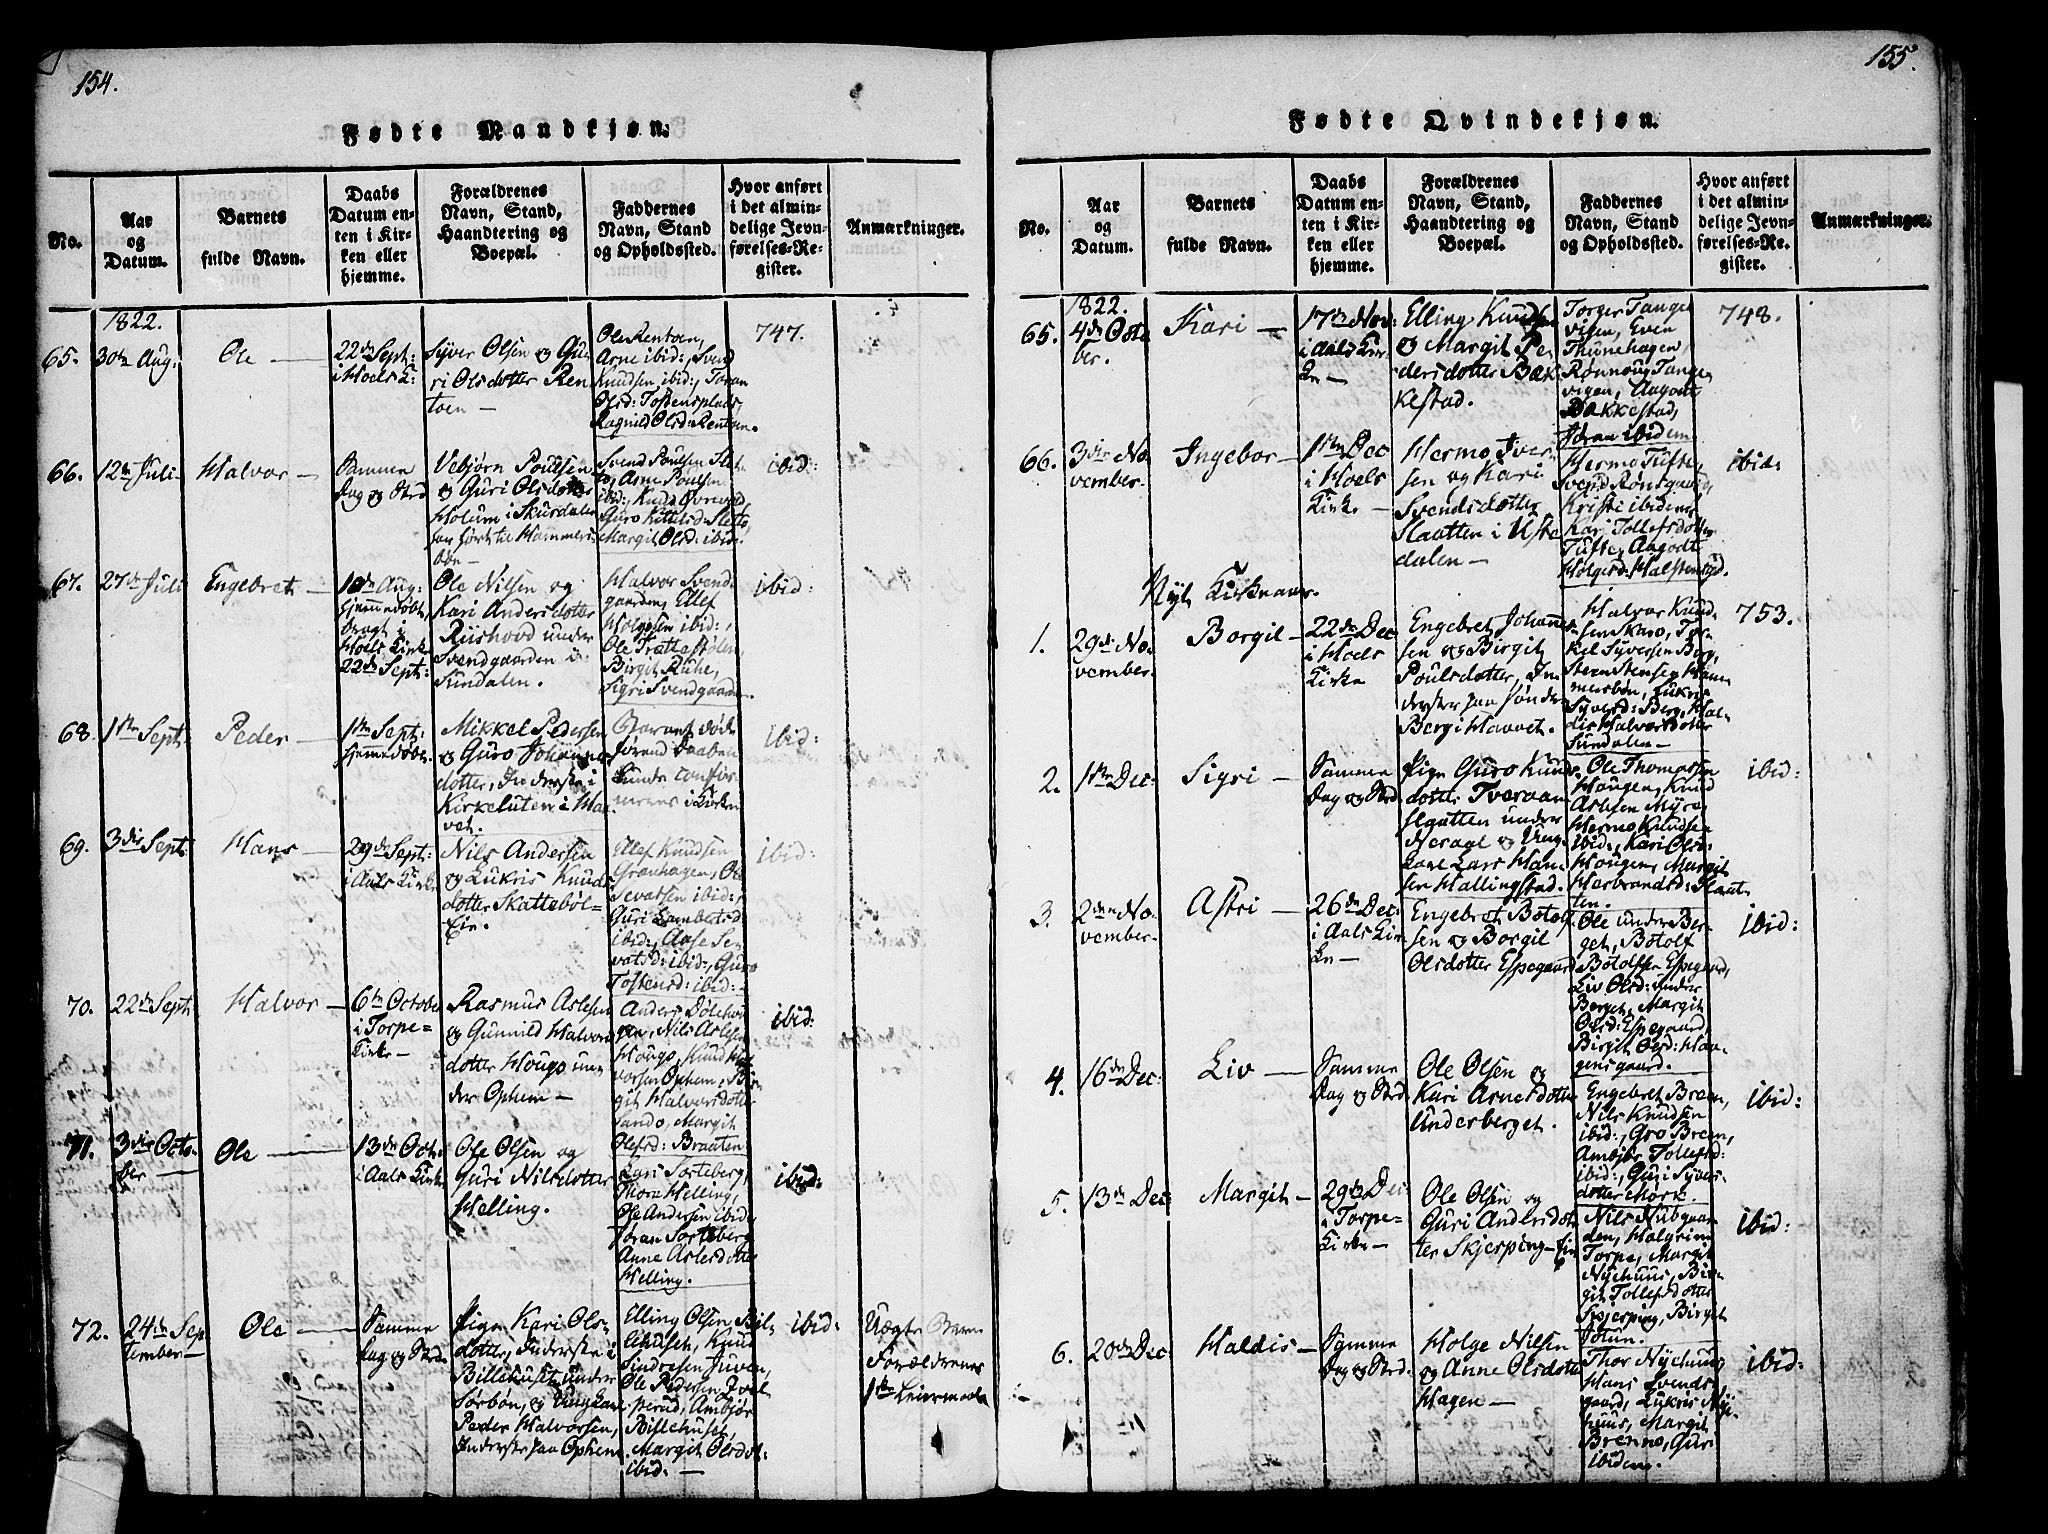 154.
Fødte Mandkjøn.
No.
Aar
og
Datum.
Barnets
fulde Navn.
Daabs
Datum en-
ten i Kir-
ken eller
hjemme.
Forældrenes
Navn, Stand,
Haandtering og
Boepæl.
Faddernes
Navn, Stand
og Opholdssted.
Hvor anført
i det almin-
delige Jevn-
førelses-Re-
gister.
Anmærkninger.
1822.
65.
30te Aug:
Ole
22de Sept:
i Hoels K:
Syver Olsen og Gu
ri Olsdotter Ren
toen
Ole Rentoen,
Arne ibid:, Svend
Knudsen ibid:, Joran
Olsd: Tostensplads,
Ragnild Olsd: Rentoen.
747.
66.
12te Juli
Halvor
Samme
Dag og Sted
Vebjørn Poulsen
og Guri Olsdotter
Holum i Skurdalen
Svend Poulsen Slet
to, Arne Poulsen
ibid:, Knud
Guro Kittelsd: Sletto,
Margit Olsd: ibid:
ibid:
67.
27de Juli
Engebret
10de Aug:
hjemmedøbt,
bragt i
Hoels Kirke
22de Sept:
Ole Nilsen og
Kari Andersdotter
Riishovd under
Svendgaarden i
Sundalen.
Halvor Svend
gaarden, Ellef
Holgesen ibid:,
Ole Trøttestølen,
Birgit Ruhe,
Sigri Svendgaarden
ibid:
68.
1ste Sept:
Peder
1ste Sept:
hjemmedøbt
Mikkel Pedersen
og Guro Johannes
dotter, Inderster i
Kirkeluten i Ha
vet.
Barnet døde
førend Daaben
kunde confir
meres i Kirken
ibid:
69.
3die Sept:
Hans
29de Sept:
i Aals Kirke
Nils Andersen
og Lukris Knuds
dotter Skattebøl-
Eie.
Ellef Knudsen
Granhagen, Ole
Sevatsen ibid:,
Guri Lambertsd
ibid:, Aase Se
vatsd: ibid:, Guro
Tostensd: ibid:
ibid:
70.
22de Sept
Halvor
6te October
i Torpe-
Kirke
Rasmus Aslesen
og Gunnild Halvors
dotter Hougo un
der Ophem
Nils Aslesen
Hougo, Knud Hal
vorsen Ophem, Bir
git Halvorsdotter
Sando, Margit
Olefsd: Braaten
ibid:
71.
3die Octo-
ber
Ole
13de Oct:
i Aals Kirke
Ole Olsen og
Guri Nilsdotter
Helling.
Lars Sorteberg,
Thore Helling,
Ole Andersen ibid:,
Joran Sorteberg
Anne Aslesdotter
Helling.
ibid:
72.
24de Sep
tember
Ole
Samme
Dag og Sted.
Pige Kari Ols-
dotter, Inderste i
Billehuset under
Sørbøn, og Ungkarl
Peder Halvorsen,
Inderste paa Ophem
Elling Olsen Bil
lehuset, Knud
Sindresen Juven,
Ole Pedersen
Ambjør
Billehuset,
Margit Olsdot:
ibid:
ibid:
Uægte Barn
Forældrenes
1ste Leiermaal
155.
Fødte Qvindekjøn.
No.
Aar
og
Datum.
Barnets
fulde Navn.
Daabs
Datum en-
ten i Kir-
ken eller
hjemme.
Forældrenes
Navn, Stand,
Haandtering og
Boepæl.
Faddernes
Navn, Stand
og Opholdssted.
Hvor anført
i det almin-
delige Jevn-
førelses-Re-
gister.
Anmærkninger.
1822.
65.
4de Octo
ber.
Kari
17de Nov:
i Aals Kir
ke
Elling Knudsen
og Margit Pe
dersdotter Bak
kestad.
Torger Tange
vigen, Even
Thunehagen,
Rønnoug Tange
vigen, Aagodt
Bakkestad,
Joran ibidem
748.
66.
3die No
vember.
Ingebor
1ste Dec
i Hoels
Kirke
Hermo Iver
sen og Kari
Svendsdotter
Slaatten i Uste
dalen
Hermo Tufte,
Svend Rønsgaard,
Kristi ibidem
Kari Tollefsdotter
Tufte, Aagodt
Holgesd: Halstensgd.
ibid:
Nyt Kirkeaar.
1.
29de No
vember.
Borgil
22de Dec
i Hoels
Kirke
Engebret Johannes
sen og Birgit
Poulsdotter, In
derster paa Søndre
Berg i Havet.
Halvor Knud
sen Skaro, Tor
kel Syversen Berg,
Steen Stensen Ham
mersbøn, Lukris
Syversd: Berg, Hal
dis Halvorsdotter
Sundalen
753.
2.
1ste Dec:
Sigri
Samme
Dag og Sted.
Pige Guro Knuds
dotter Tveraan
slaatten under
Neraal og Ung
karl Lars Han
sen Hallingstad.
Ole Thomassen
Hougen, Knud
Aslesen Myro
Hermo Knudsen
ibid:, Kari Olsd:
Hougen, Margit
Herbrandsd: Slaat
ten.
ibid:
3.
2den No
vember.
Astri
26de Dec:
i Aals Kir
ke
Engebret Botolf
sen og Borgil
Olsdotter Espegaard
Ole under Ber
get, Botolf
Botolfsen Espegaard,
Liv Olsd: under
Berget, Margit
Olsd: Espegaard,
Birgit Olsd: Haa
gensgaard.
ibid:
4.
16de Dec:
Liv
Samme
Dag og Sted.
Ole Olsen og
Kari Arnesdotter
Underberget.
Engebret Breen,
Nils Knudsen
ibid:, Gro Breen,
Ambjør Tollefsd:
ibid:, Guri Syvers
dotter Mørk.
ibid:
5.
13de Dec
Margit
29de Dec:
i Torpe-
Kirke
Ole Olsen og
Guri Andersdot
ter Skjerping-Eie
Nils Nubgaar
den, Halgrim
Torpe, Margit
Nyhuus, Bir
git Tollefsdotter
Skjerping, Birgit
Jotun.
ibid:
6.
20de Dec
Haldis
Samme
Dag og Sted.
Holge Nilsen
og Anne Olsdotter
Hagen
Thor Nyehuus
Hans Svends
gaard, Lukris Ny
huus, Margit
Brenno, Guri
ibidem.
ibid: